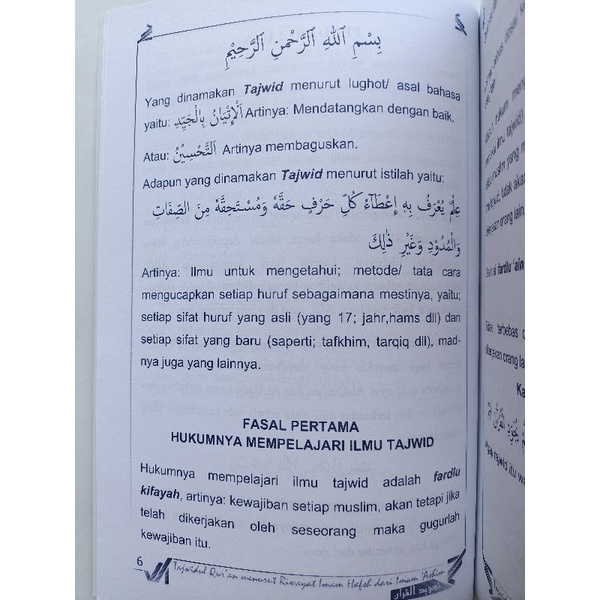 بِسْمِ اللهِ الرَّحْمٰنِ الرَّحِيْمِ
Yang dinamakan Tajwid menurut lughot/ asal bahasa
yaitu: اَلْإِتْيَانُ بِالْجَيِّدِ Artinya: Mendatangkan dengan baik.
Atau: اَلتَّحْسِيْنُ Artinya membaguskan.
Adapun yang dinamakan Tajwid menurut istilah yaitu:
عِلْمٌ يُعْرَفُ بِهِ إِعْطَاءُ كُلِّ حَرْفٍ حَقَّهُ وَمُسْتَحِقَّهُ مِنَ الصِّفَاتِ
وَالْمُدُوْدِ وَغَيْرِ ذٰلِكَ
Artinya: Ilmu untuk mengetahui; metode/ tata cara
mengucapkan setiap huruf sebagaimana mestinya, yaitu;
setiap sifat huruf yang asli (yang 17; jahr,hams dll) dan
setiap sifat yang baru (saperti; tafkhim, tarqiq dll), mad-
nya juga yang lainnya.
FASAL PERTAMA
HUKUMNYA MEMPELAJARI ILMU TAJWID
Hukumnya mempelajari ilmu tajwid adalah fardlu
kifayah, artinya: kewajiban setiap muslim, akan tetapi jika
telah dikerjakan oleh seseorang maka gugurlah
kewajiban itu.
6
Tajwidul Qur'an menurut Riwayat Imam Hafsh dari Imam 'Ashim
تجويد القرآن
fardlu 'ain
terbebas